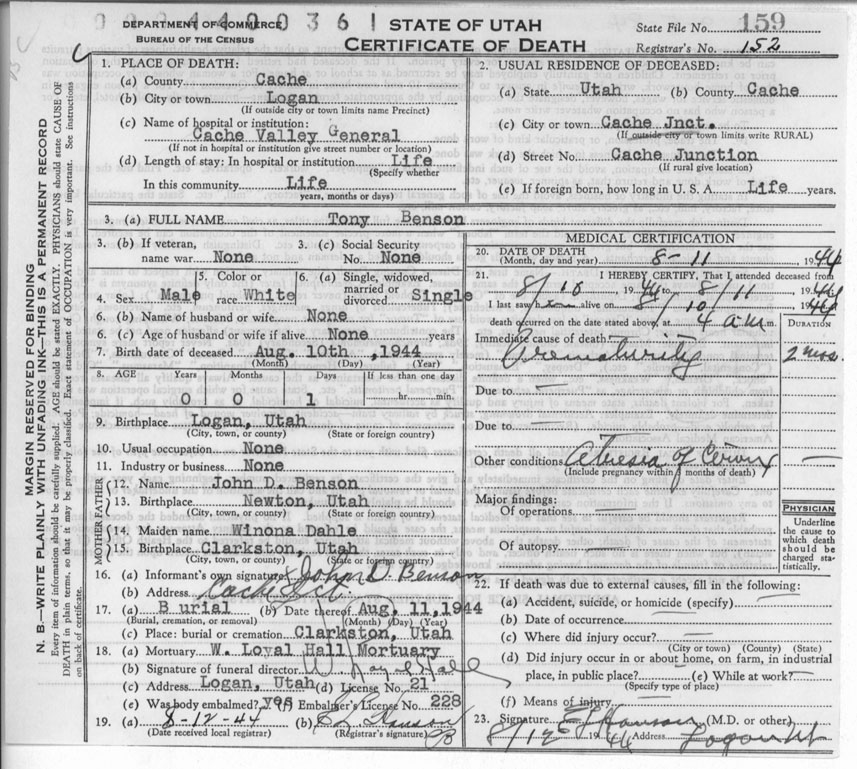 000440036 1
DEPARTMENT OF COMMERCE
BUREAU OF THE CENSUS
STATE OF UTAH
CERTIFICATE OF DEATH
State File No. 159
Registrar's No. 152
MARGIN RESERVED FOR BINDING
N. B.—WRITE PLAINLY WITH UNFADING INK—THIS IS A PERMANENT RECORD
Every item of information should be carefully supplied. AGE should be stated EXACTLY. PHYSICIANS should state CAUSE OF
DEATH in plain terms, so that it may be properly classified. Exact statement of OCCUPATION is very important. See instructions
on back of certificate.
1. PLACE OF DEATH:
(a) County Cache
(b) City or town Logan
(If outside city or town limits name Precinct)
(c) Name of hospital or institution:
Cache Valley General
(If not in hospital or institution give street number or location)
(d) Length of stay: In hospital or institution Life
(Specify whether
In this community Life
years, months or days)
2. USUAL RESIDENCE OF DECEASED:
(a) State Utah (b) County Cache
(c) City or town Cache Jnct.
(If outside city or town limits write RURAL)
(d) Street No. Cache Junction
(If rural give location)
(e) If foreign born, how long in U. S. A. Life years.
3. (a) FULL NAME Tony Benson
3. (b) If veteran, name war None
3. (c) Social Security No. None
4. Sex Male
5. Color or race White
6. (a) Single, widowed, married or divorced Single
6. (b) Name of husband or wife None
6. (c) Age of husband or wife if alive None years
7. Birth date of deceased Aug. 10th ,1944
(Month) (Day) (Year)
8. AGE Years Months Days If less than one day
0 0 1 hr. min.
9. Birthplace Logan, Utah
(City, town, or county) (State or foreign country)
10. Usual occupation None
11. Industry or business None
FATHER
12. Name John D. Benson
13. Birthplace Newton, Utah
(City, town, or county) (State or foreign country)
MOTHER
14. Maiden name Winona Dahle
15. Birthplace Clarkston, Utah
(City, town, or county) (State or foreign country)
16. (a) Informant's own signature John D. Benson
(b) Address Cache Jct
17. (a) Burial (b) Date thereof Aug. 11,1944
(Burial, cremation, or removal) (Month) (Day) (Year)
(c) Place: burial or cremation Clarkston, Utah
18. (a) Mortuary W. Loyal Hall Mortuary
(b) Signature of funeral director W. Loyal Hall
(c) Address Logan, Utah (d) License No. 21
(e) Was body embalmed? yes (f) Embalmer's License No. 228
19. (a) 8-12-44 (b)
(Date received local registrar) (Registrar's signature)
MEDICAL CERTIFICATION
20. DATE OF DEATH
(Month, day and year) 8-11 1944
21. I HEREBY CERTIFY, That I attended deceased from
8/10, 1944 to 8/11 1944
I last saw him alive on 8/10 1944
death occurred on the date stated above, at 4 a.m. m.
DURATION
Immediate cause of death
Prematurity 2 mos.
Due to —
Due to —
Other conditions Atresia of —
(Include pregnancy within months of death)
Major findings:
Of operations —
Of autopsy —
PHYSICIAN
Underline
the cause to
which death
should be
charged sta-
tistically.
22. If death was due to external causes, fill in the following:
(a) Accident, suicide, or homicide (specify) —
(b) Date of occurrence —
(c) Where did injury occur? —
(City or town) (County) (State)
(d) Did injury occur in or about home, on farm, in industrial
place, in public place? (e) While at work? —
(Specify type of place)
(f) Means of injury —
23. Signature (M.D. or other)
8/12 1944 Address Logan Ut